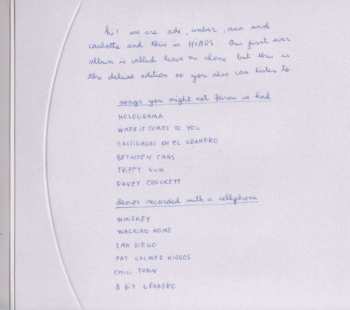 hi! we are ade, amber, ana and
carlotta and this is HINDS. Our first ever
album is called leave me alone but this is
the deluxe edition so you also can listen to
songs you might not know we had
HOLOGRAMA
WHEN IT COMES TO YOU
CASTIGADAS EN EL GRANERO
BETWEEN CANS
TRIPPY GUM
DAVEY CROCKETT
demos recorded with a cellphone
WHISKEY
WALKING HOME
SAN DIEGO
FAT CALMED KIDDOS
CHILI TOWN
8 BIT GRANERO